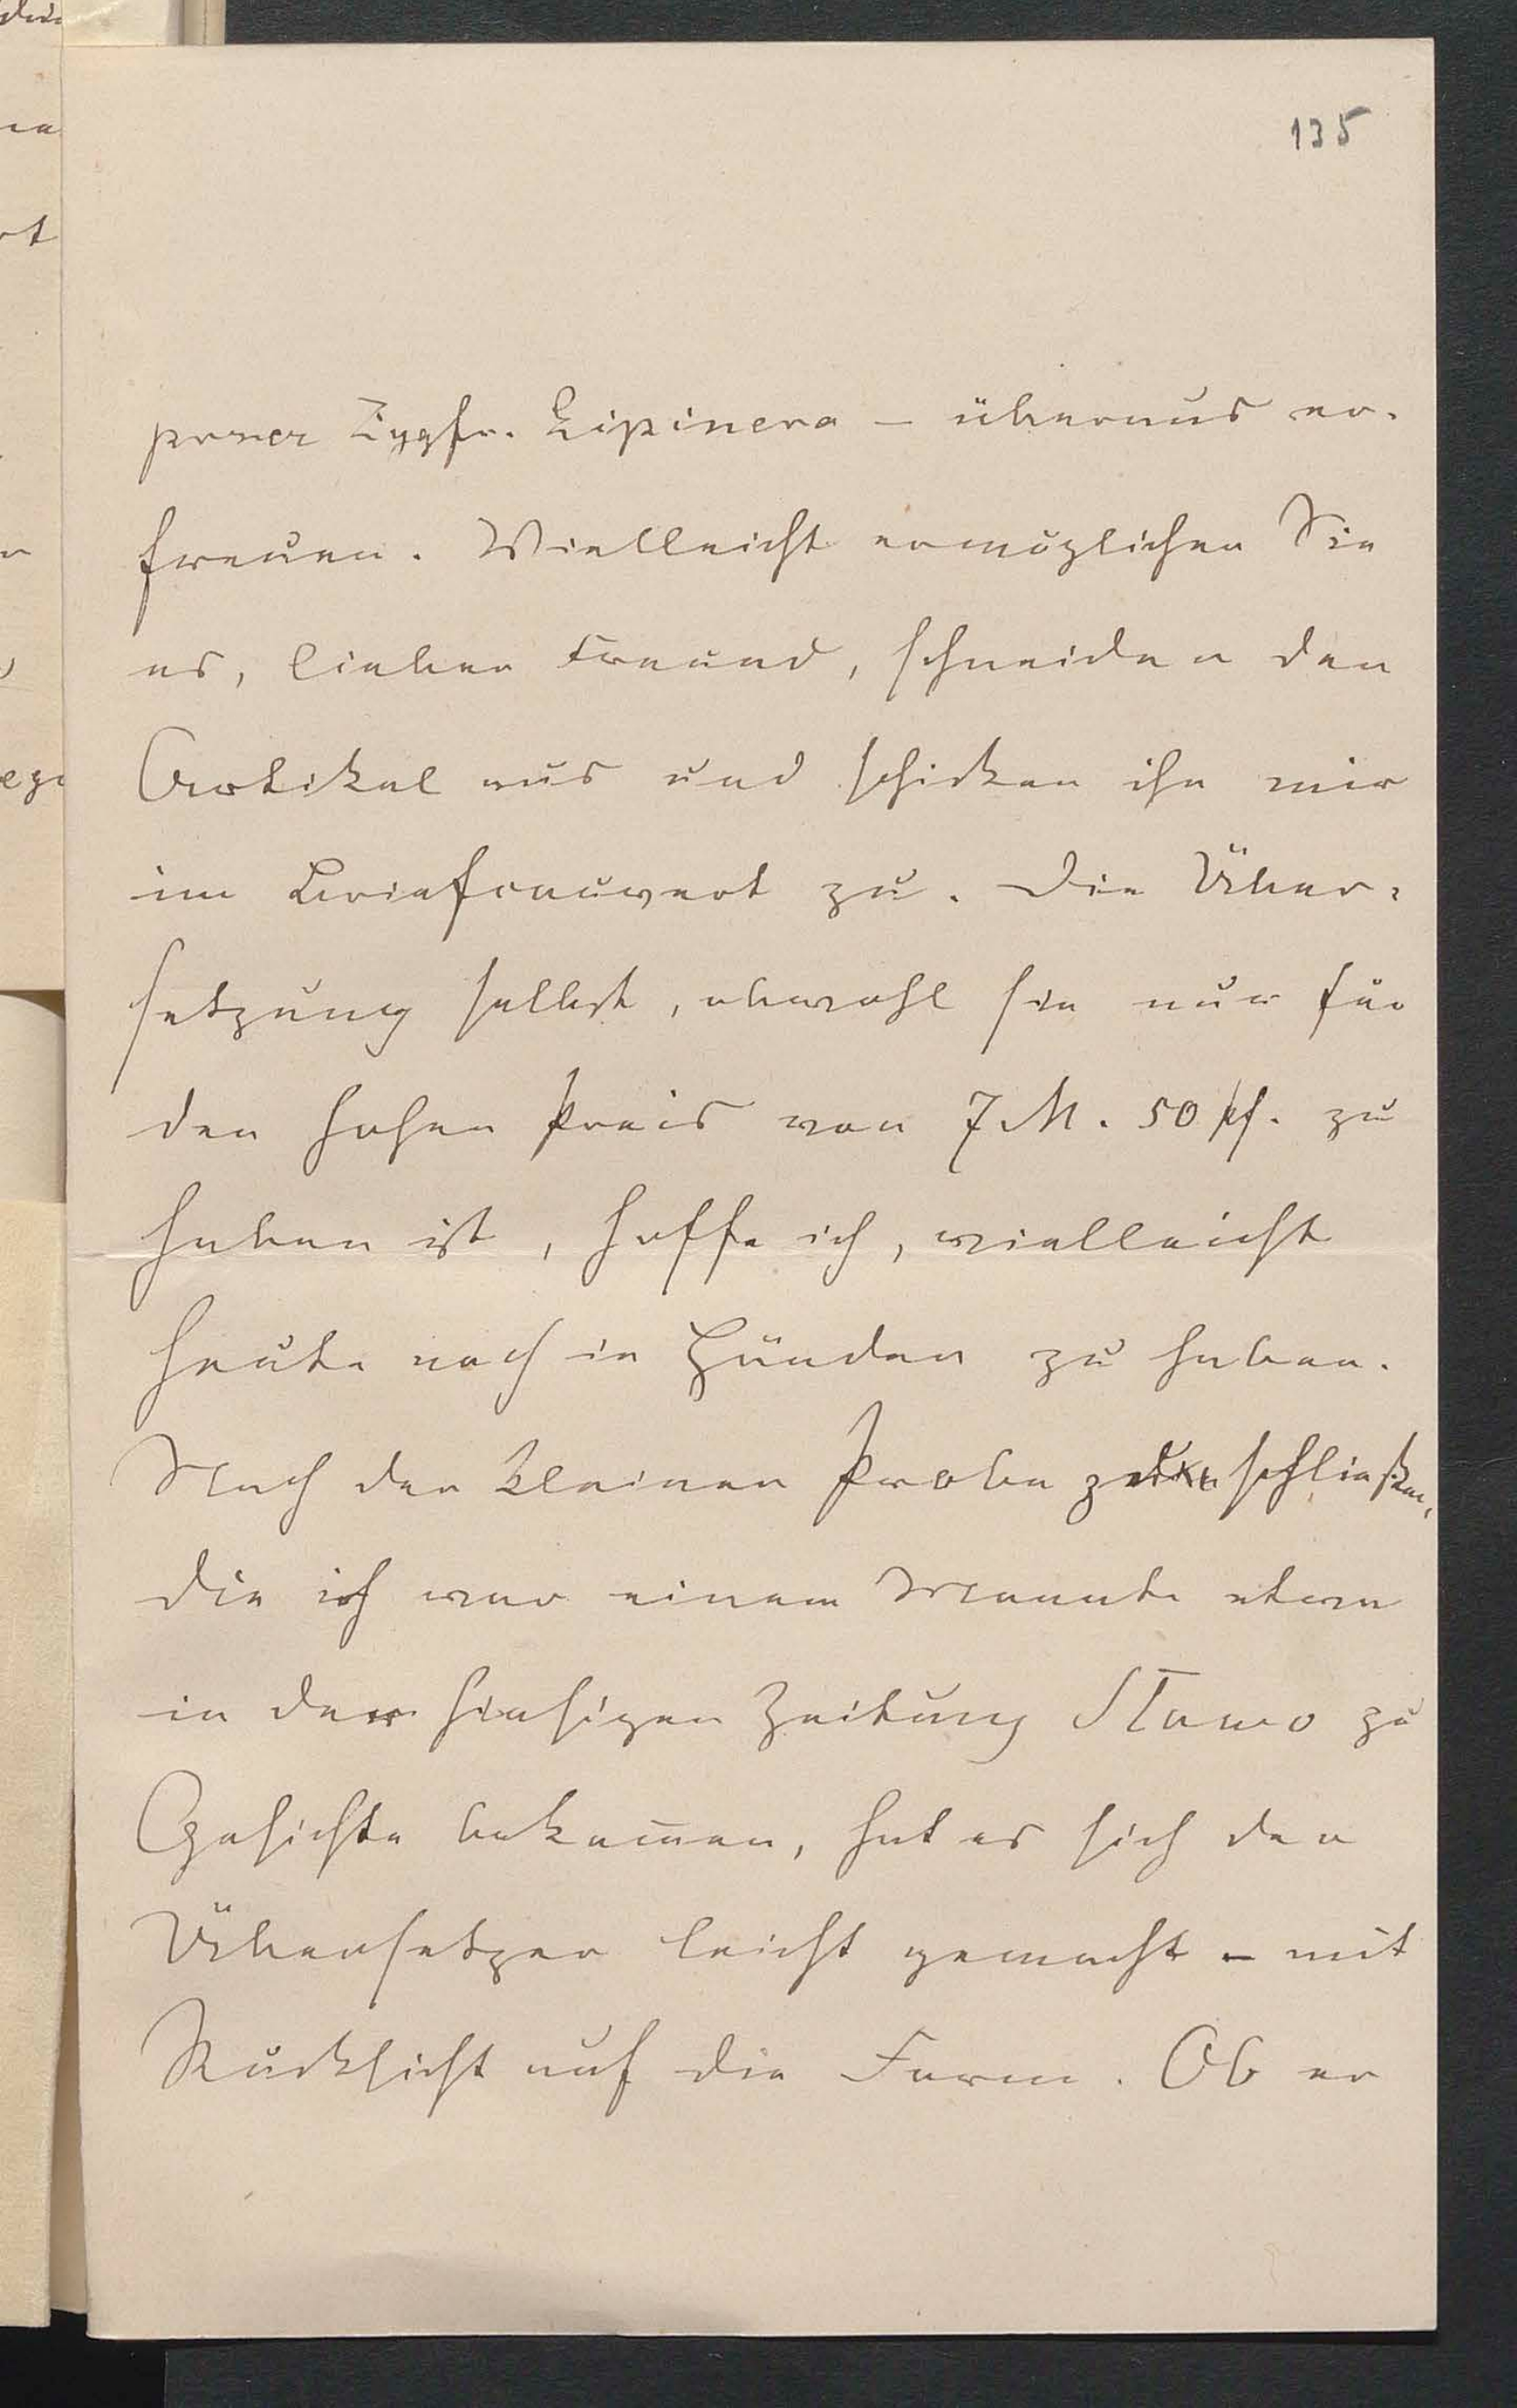 135
przez Zygfr. Lipinera – überaus er-
freuen. Vielleicht ermöglichen Sie
es, lieber Freund, schneiden den
Artikel aus und schicken ihn mir
im Briefcouvert zu. Die Über-
setzung selbst, obwohl sie nur für
den hohen Preis von 7 M. 50 pf. zu
haben ist, hoffe ich, vielleicht
heute noch in Händen zu haben.
Nach der kleinen Probe zu schließen,
die ich vor einem Monate etwa
in der hiesigen Zeitung Słowo zu
Gesichte bekommen, hat es sich der
Übersetzer leicht gemacht – mit
Rücksicht auf die Form. Ob er